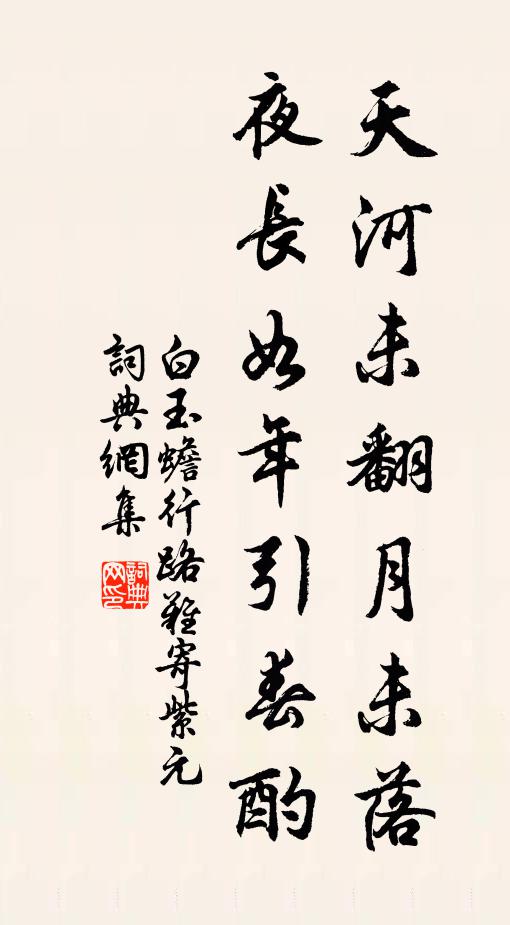 天河未翻月未落
夜長如年引春酌
白玉蟾行路難寄紫元
詞典網集
詞典
网印